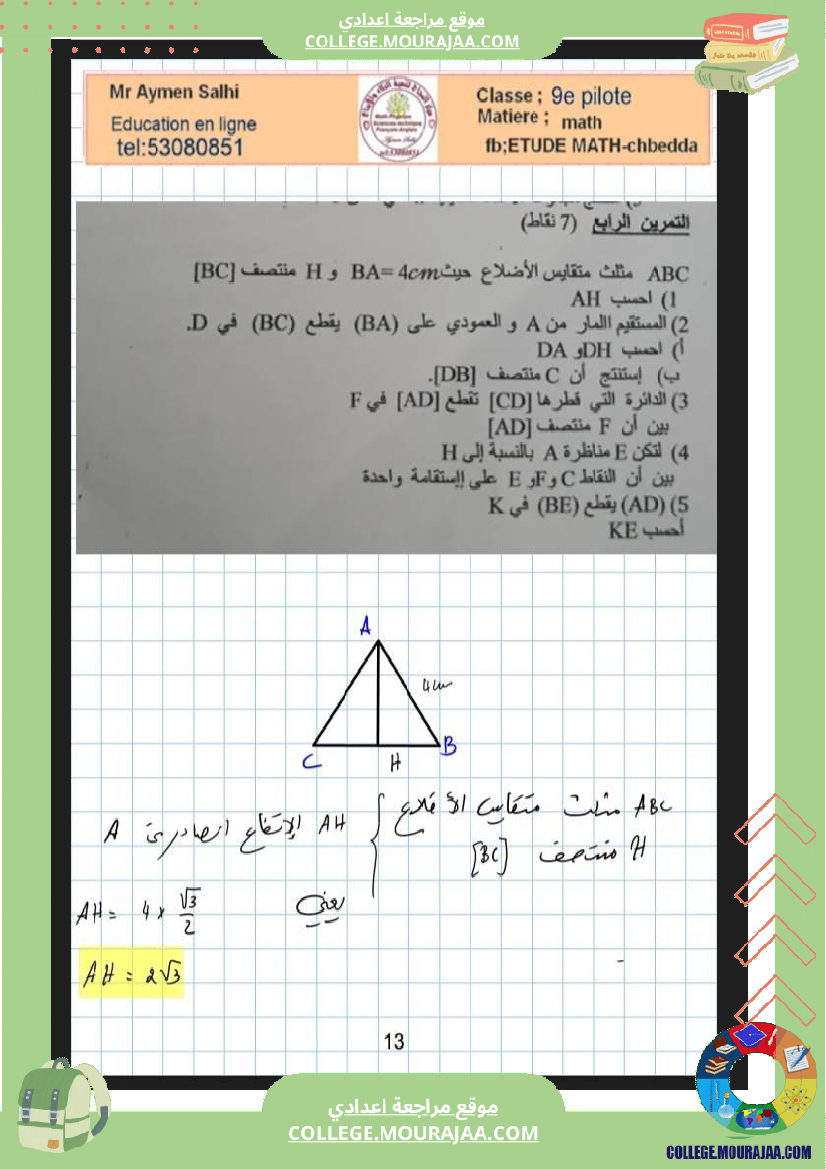 موقع مراجعة اعدادي
COLLEGE.MOURAJAA.COM
Mr Aymen Salhi
Education en ligne
tel:53080851
Classe ; 9e pilote
Matiere ; math
fb;ETUDE MATH-chbedda
التمرين الرابع (7 نقاط)
ABC مثلث متقايس الأضلاع حيث BA= 4cm و H منتصف [BC]
1) احسب AH
2) المستقيم االمار من A و العمودي على (BA) يقطع (BC) في D.
أ) احسب DH و DA
ب) إستنتج أن C منتصف [DB].
3) الدائرة التي قطرها [CD] تقطع [AD] في F
بين أن F منتصف [AD]
4) لتكن E مناظرة A بالنسبة إلى H
بين أن النقاط C و F و E على إستقامة واحدة
5) (AD) يقطع (BE) في K
أحسب KE
A
4cm
C
H
B
ABC مثلث متقايس الأضلاع
H منتصف [BC]
AH الإرتفاع الصادر من A
يعني
AH = 4 × √3/2
AH = 2√3
13
موقع مراجعة اعدادي
COLLEGE.MOURAJAA.COM
COLLEGE.MOURAJAA.COM